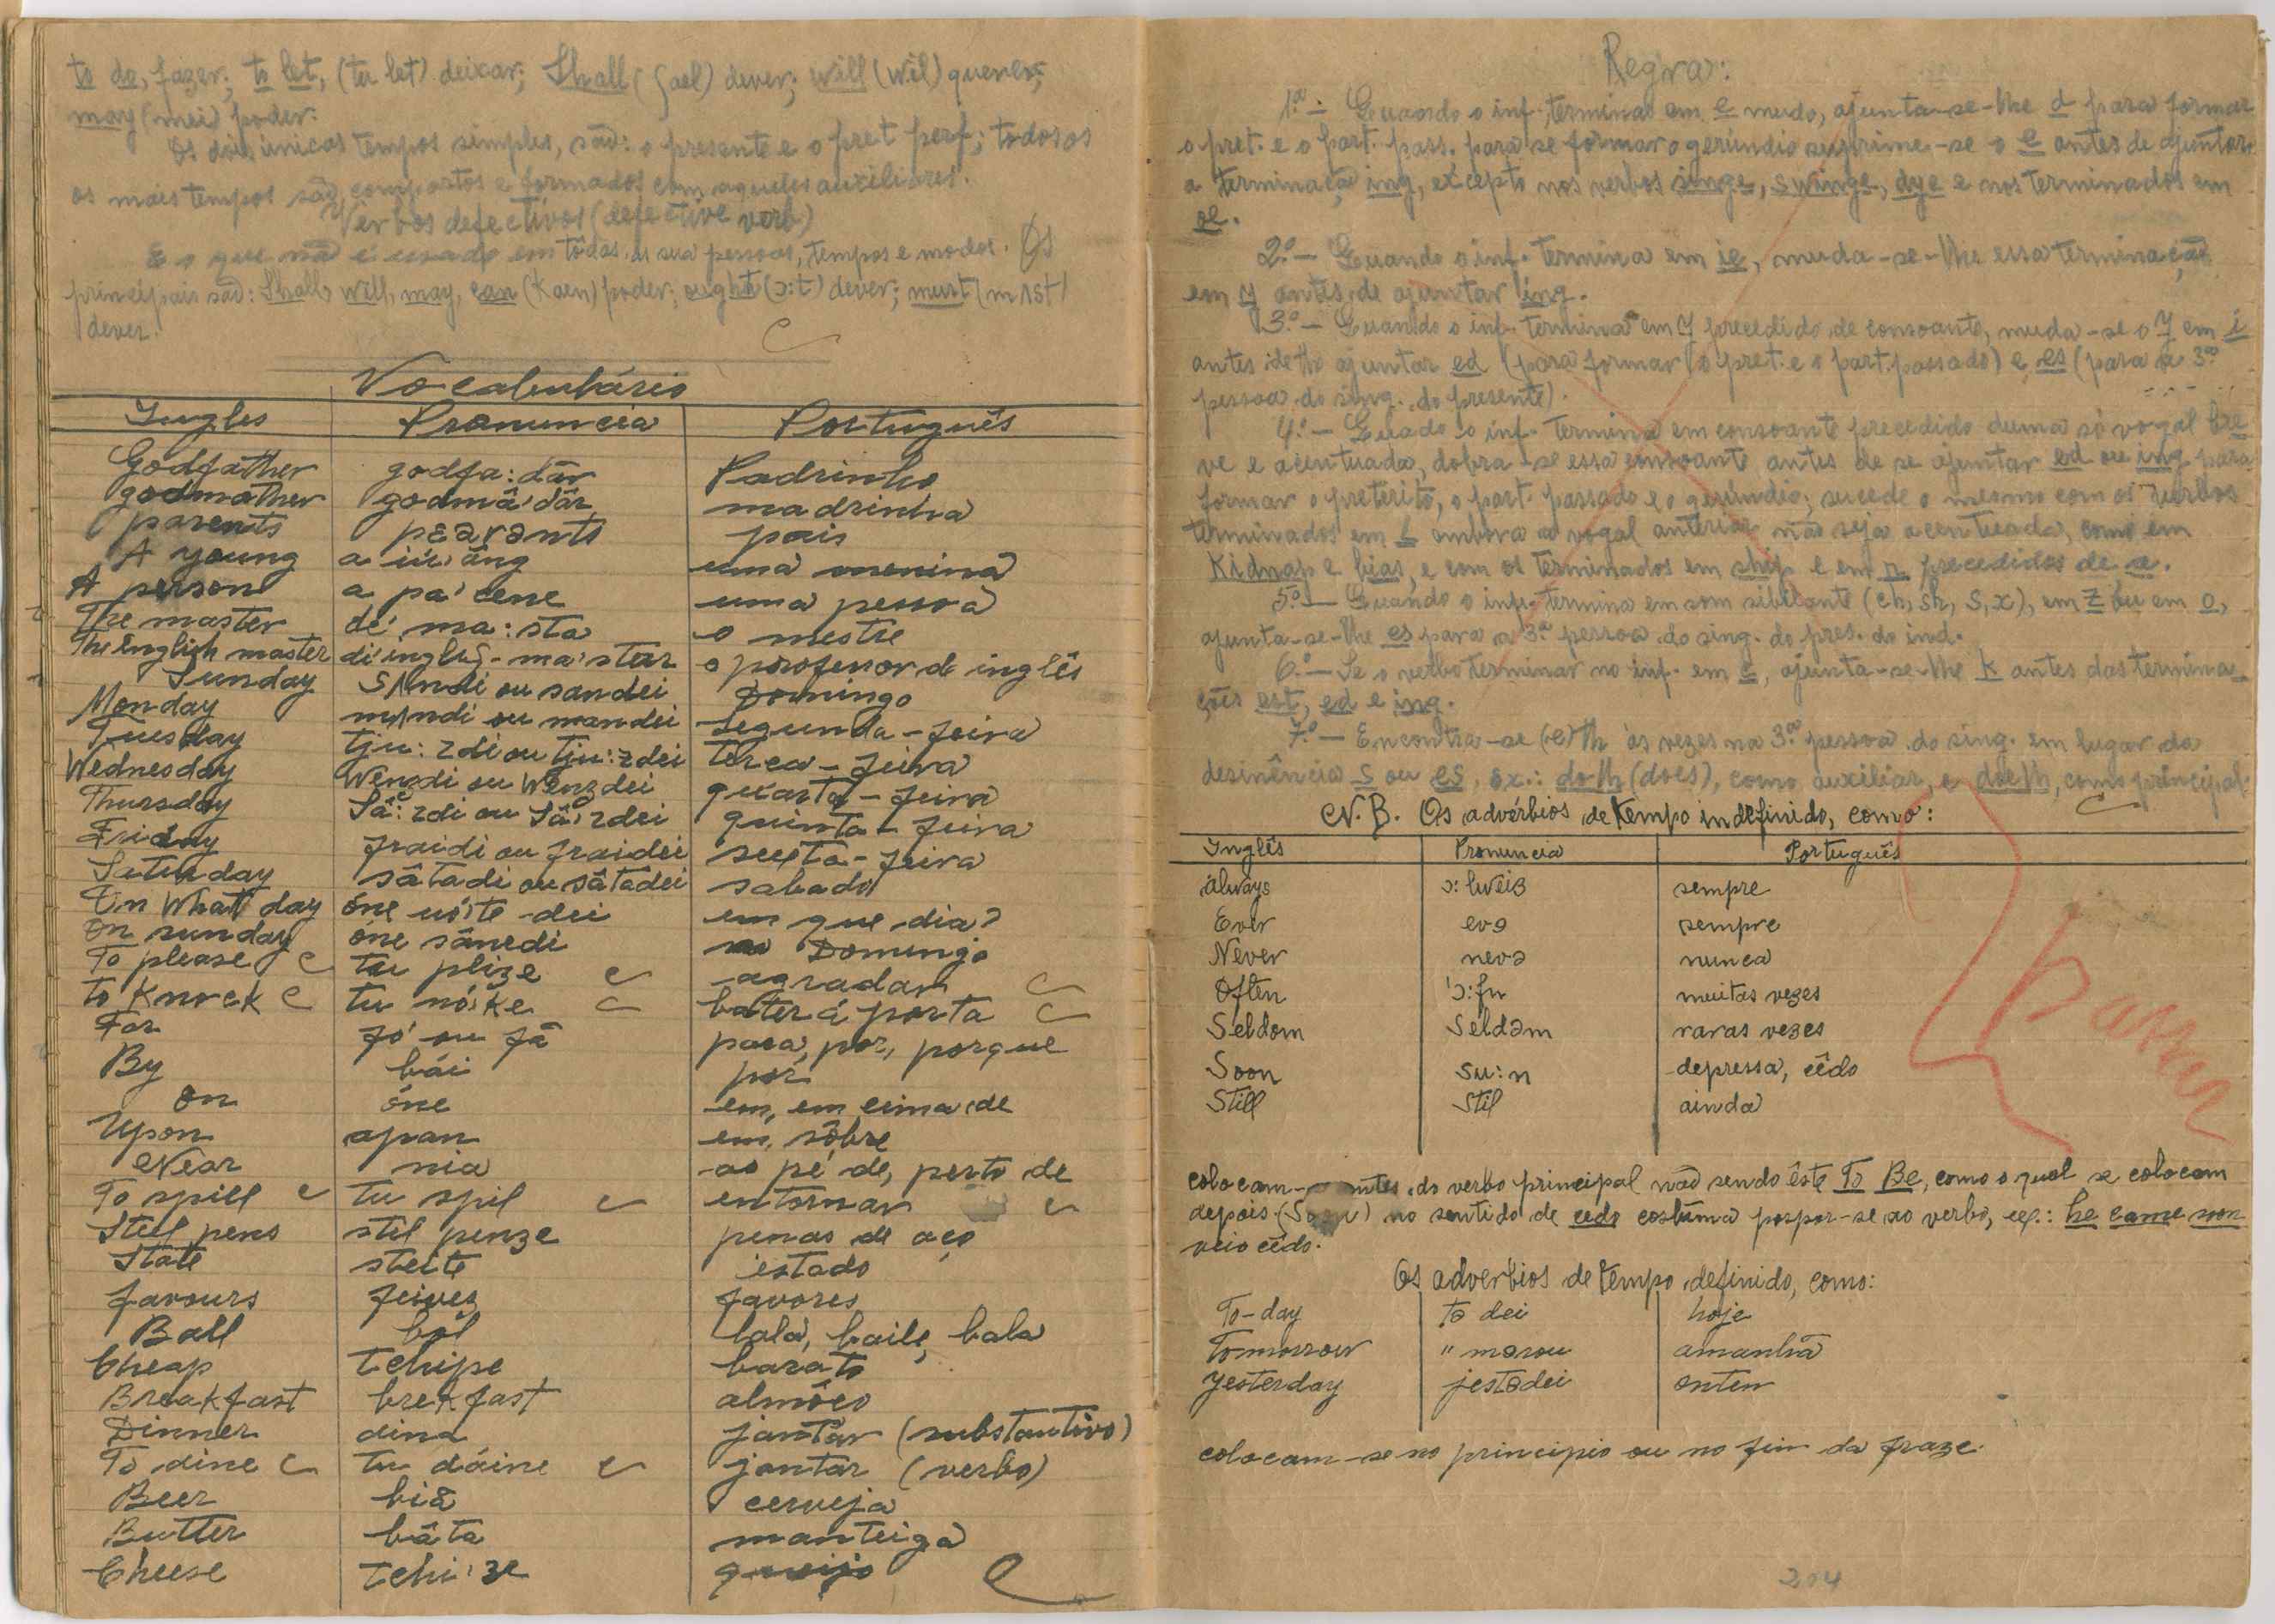 to do, fazer; to let, (tu let) deixar; Shall (ʃael) dever; will (wil) querer;
may (mei) poder.
Os dois únicos tempos simples, são: o presente e o pret perf; todos os
os mais tempos são compostos e formados com aqueles auxiliares.
Verbos defectivos (defective verb)
É o que não é usado em tôdas as sua pessoas, tempos e modos. Os
principais são: Shall, will, may, can (Kaen) poder; ought (ɔ:t) dever; must (mʌst)
dever.
Vocabulário
Ingles Pronuncia Português
Godfather godfa:dâr Padrinho
godmother godmâ'dâr madrinha
parents pɛərənts pais
A young a iú'âng uma menina
A person a pa'cene uma pessoa
The master dé ma:sta o mestre
The English master di ingliʃ-ma'star o professor de inglês
Sunday sʌndi ou sandei Domingo
Monday mʌndi ou mandei segunda-feira
Tuesday tju:zdi ou tju:zdei terca-feira
Wednesday Wenzdi ou Wenzdei quarta-feira
Thursday Sâ:zdi ou Sâ:zdei quinta-feira
Friday fraidi ou fraidei sexta-feira
Saturday sâtadi ou sâtadei sabado
On What day óne uó'te-dei em que dia?
On sunday óne sânedi no Domingo
To please tu plize agradar
to Knock tu nóike bater á porta
For fó ou fâ para, por, porque
By bái por
On óne em, em cima de
Upon apan em, sôbre
Near nia ao pé de, perto de
To spill tu spil entornar
Steel pens stil penze penas de aço
State steite estado
favours feivez favores
Ball ból bola, baile, bala
Cheap tchipe barato
Breakfast brekfast almôco
Dinner dina jantar (substantivo)
To dine tu dáine jantar (verbo)
Beer biâ cerveja
Butter bâta manteiga
Cheese tchi:ze queijo
Regra:
1.ª- Quando o inf. termina em e mudo, ajunta-se-lhe d para formar
o pret. e o part. pass. para se formar o gerúndio suprime-se o e antes de ajuntar
a terminaçã ing, excepto nos verbos singe, swinge, dye e nos terminados em
oe.
2.º- Quando o inf. termina em ie, muda-se-lhe essa terminação
em y antes de ajuntar ing.
3.º- Quando o inf. termina em y precedido de consoante, muda-se o y em i
antes de lhe ajuntar ed (para formar o pret. e o part. passado) e es (para a 3.ª
pessoa do sing. do presente).
4.º- Quado o inf. termina em consoante precedido duma só vogal bre
ve e acentuada, dobra-se essa consoante antes de se ajuntar ed ou ing para
formar o pretérito, o part. passado e o gerúndio; sucede o mesmo com os verbos
terminados em l embora a vogal anterior não seja acentuada, como em
Kidnap e bias, e com os terminados em ship e em r precedidos de e.
5.º- Quando o inf. termina em som sibilante (ch, sh, s, x), em z ou em o,
ajunta-se-lhe es para a 3.ª pessoa do sing. do pres. do ind.
6.º- Se o verbo terminar no inf. em c, ajunta-se-lhe k antes das termina-
ções est, ed e ing.
7.º- Encontra-se (e)th às vezes na 3.ª pessoa do sing. em lugar da
desinência s ou es, ex.: doth (does), como auxiliar, e doeth, como principal.
N.B. Os advérbios de tempo indefinido, como:
Inglês Pronuncia Português
always ɔ:lweiz sempre
Ever evə sempre
Never nevə nunca
Often 'ɔ:fn muitas vezes
Seldom Seldəm raras vezes
Soon su:n depressa, cêdo
Still Stil ainda
Passar
colocam- antes do verbo principal não sendo êste To Be, como o qual se colocam
depois. (Soon) no sentido de cedo costuma pospor-se ao verbo, ex.: he came soon
veio cêdo.
Os adverbios de tempo definido, como:
To-day tə dei hoje
Tomorrow " mərou amanhã
yesterday jestədei onten
colocam-se no principio ou no fim da fraze.
204